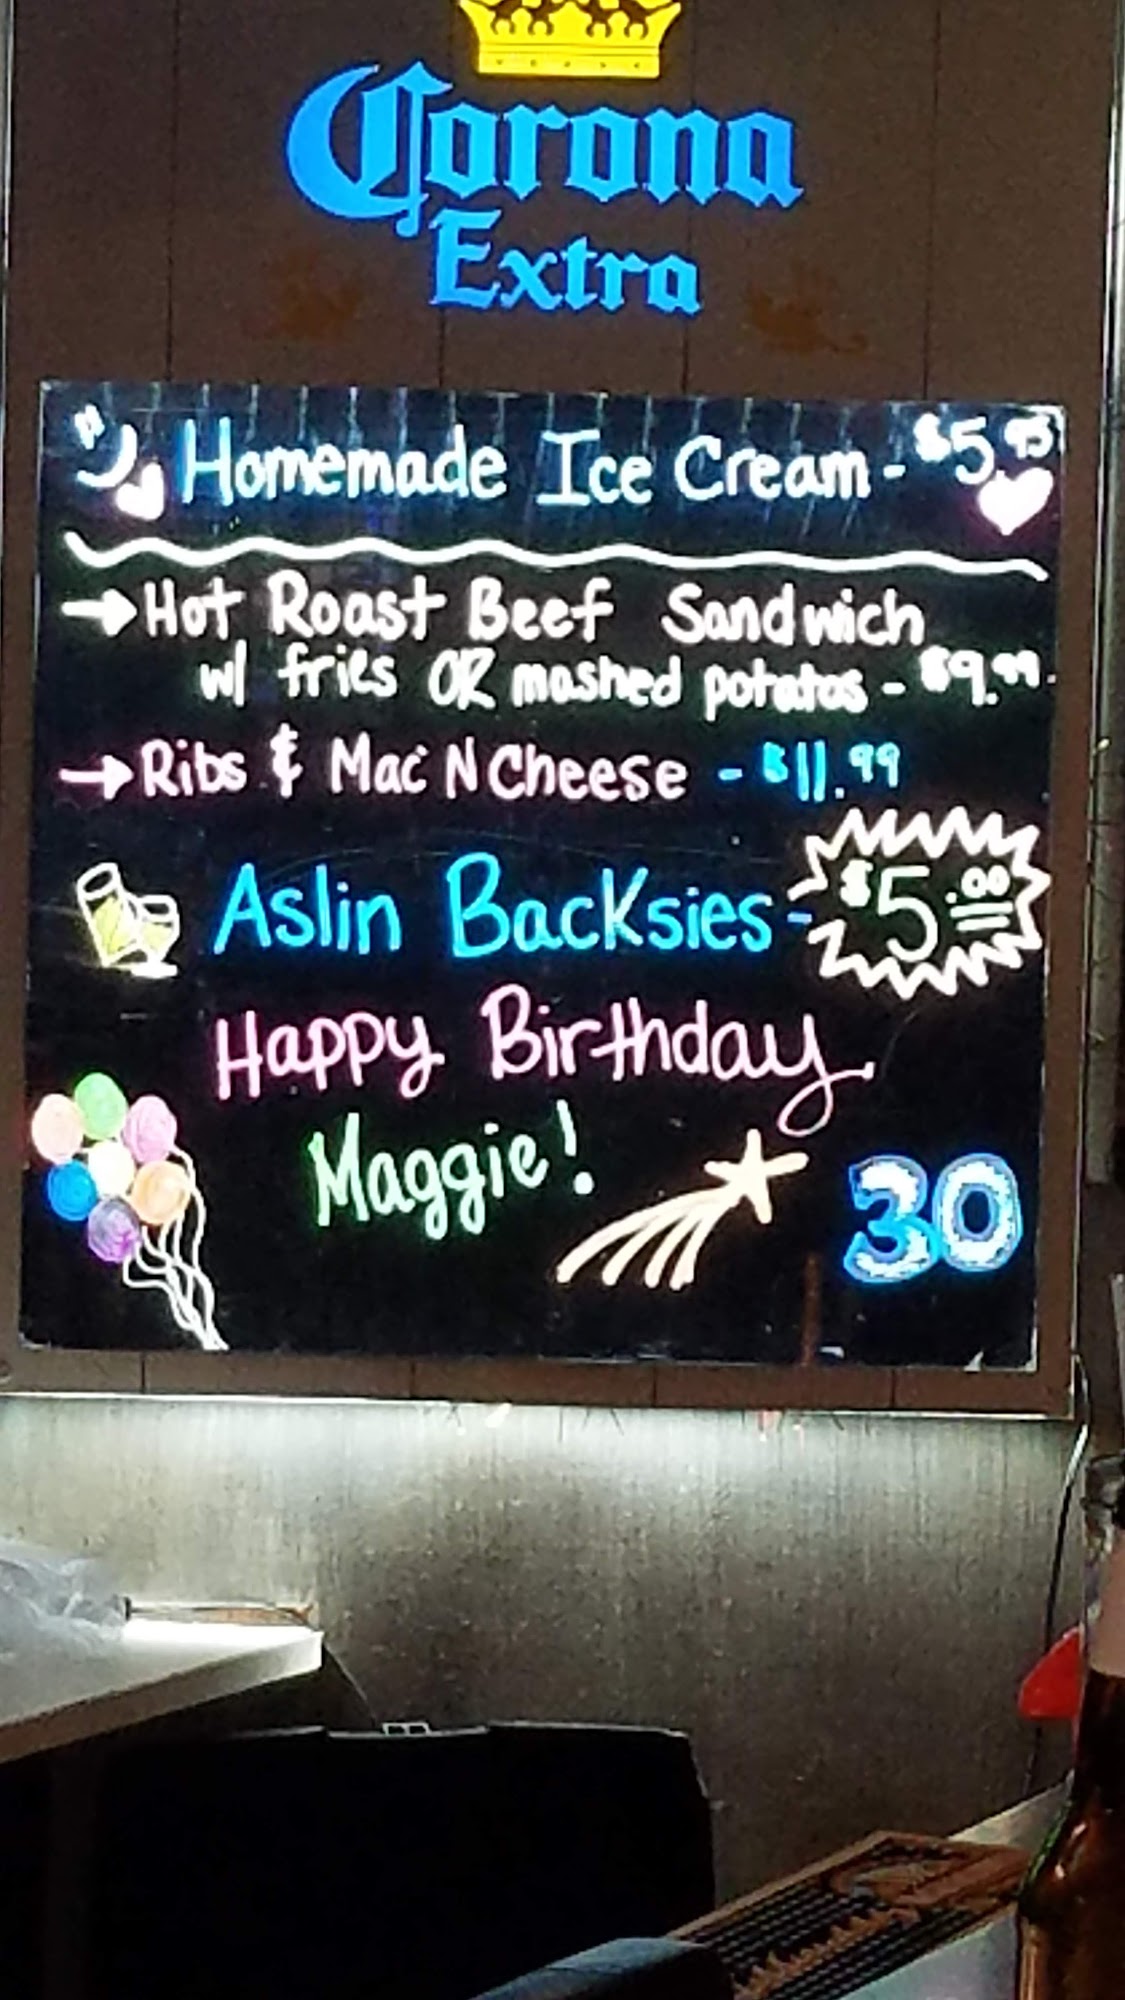 Corona
Extra
Homemade Ice Cream - $5.95
→ Hot Roast Beef Sandwich
w/ fries OR mashed potatos - $9.99
→ Ribs & Mac N Cheese - $11.99
Aslin Backsies - $5.00
Happy Birthday
Maggie!
30